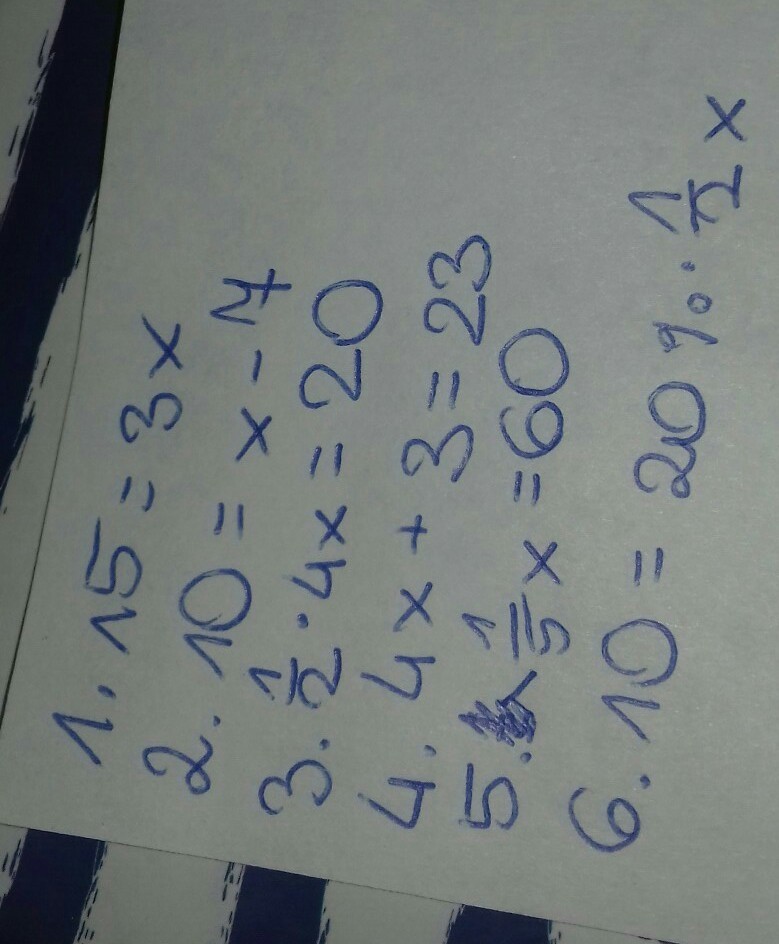 1. 15 = 3x
2. 10 = x - 7
3. 1/2 · 4x = 20
4. 4x + 3 = 23
5. 1/5 x = 60
6. 10 = 20 % · 1/2 x